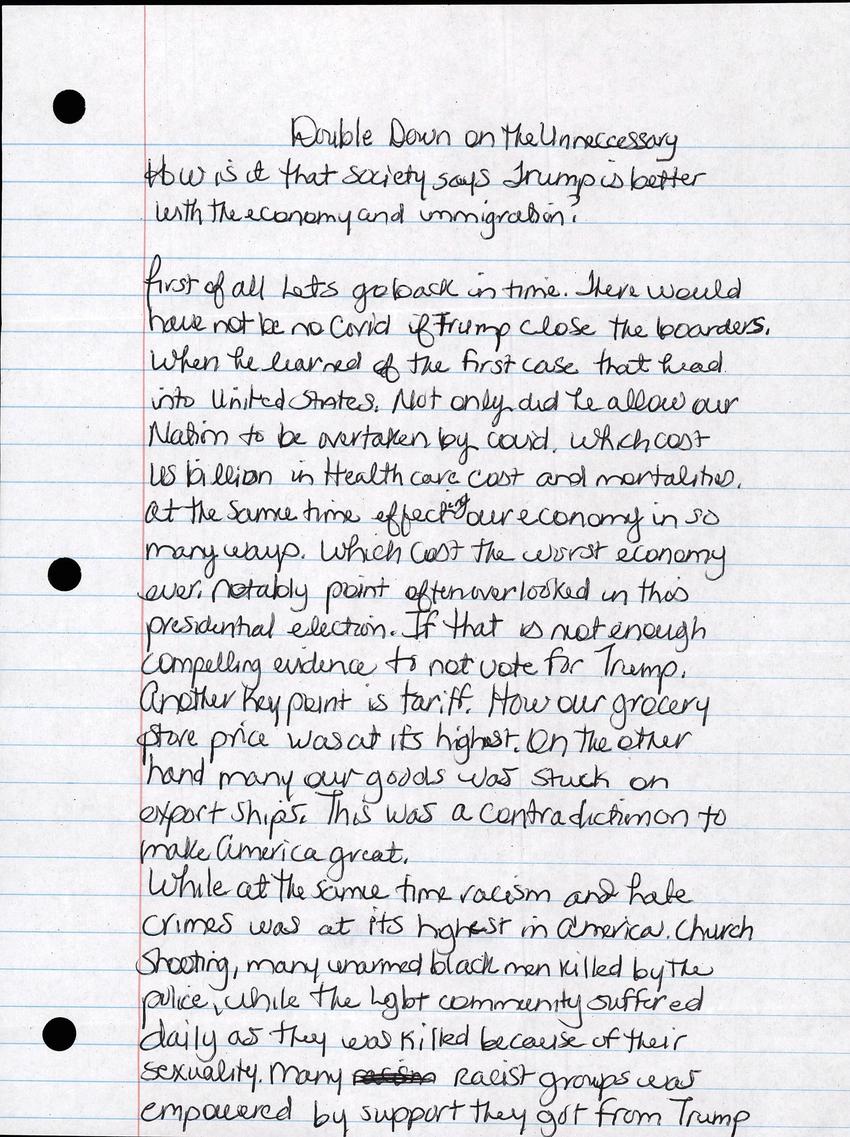 Double Down on the Unneccessary
How is it that society says Trump is better
with the economy and immigration?
first of all Lets go back in time. There would
have not be no Covid if Trump close the boarders.
When he learned of the first case that head
into United States. Not only did he allow our
Nation to be overtaken by covid. Which cost
us billion in Health care cost and mortalities.
at the same time effecting our economy in so
many ways. Which cost the worst economy
ever. notably point often overlooked in this
presidential election. If that is not enough
compelling evidence to not vote for Trump.
Another Key point is tariff. How our grocery
store price was at its highest. On the other
hand many our goods was stuck on
export ships. This was a contradictimon to
make America great.
While at the same time racism and hate
crimes was at its highest in America. Church
shooting, many unarmed black men killed by the
police, while the Lgbt community suffered
daily as they was killed because of their
sexuality. Many racist groups was
empowered by support they got from Trump